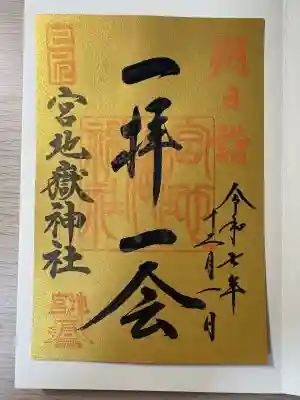 朔日詣
令和七年
十二月一日
一拝一会
宮地嶽神社